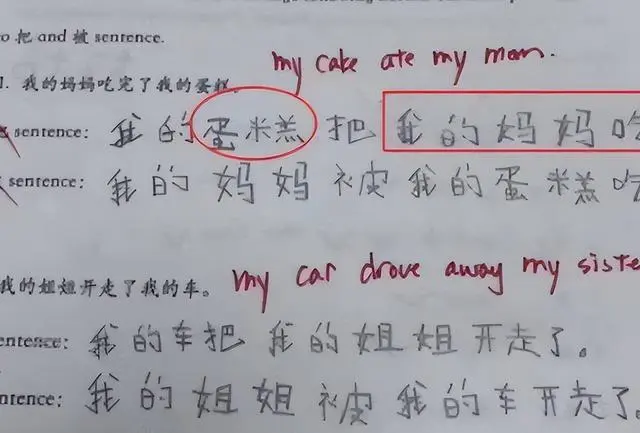 o 把 and 被 sentence.
my cake ate my mom.
1. 我的妈妈吃完了我的蛋糕。
sentence: 我的蛋糕把我的妈妈吃
sentence: 我的妈妈被我的蛋糕吃
我的姐姐开走了我的车。 my car drove away my siste
entence: 我的车把我的姐姐开走了。
ntence: 我的姐姐被我的车开走了。